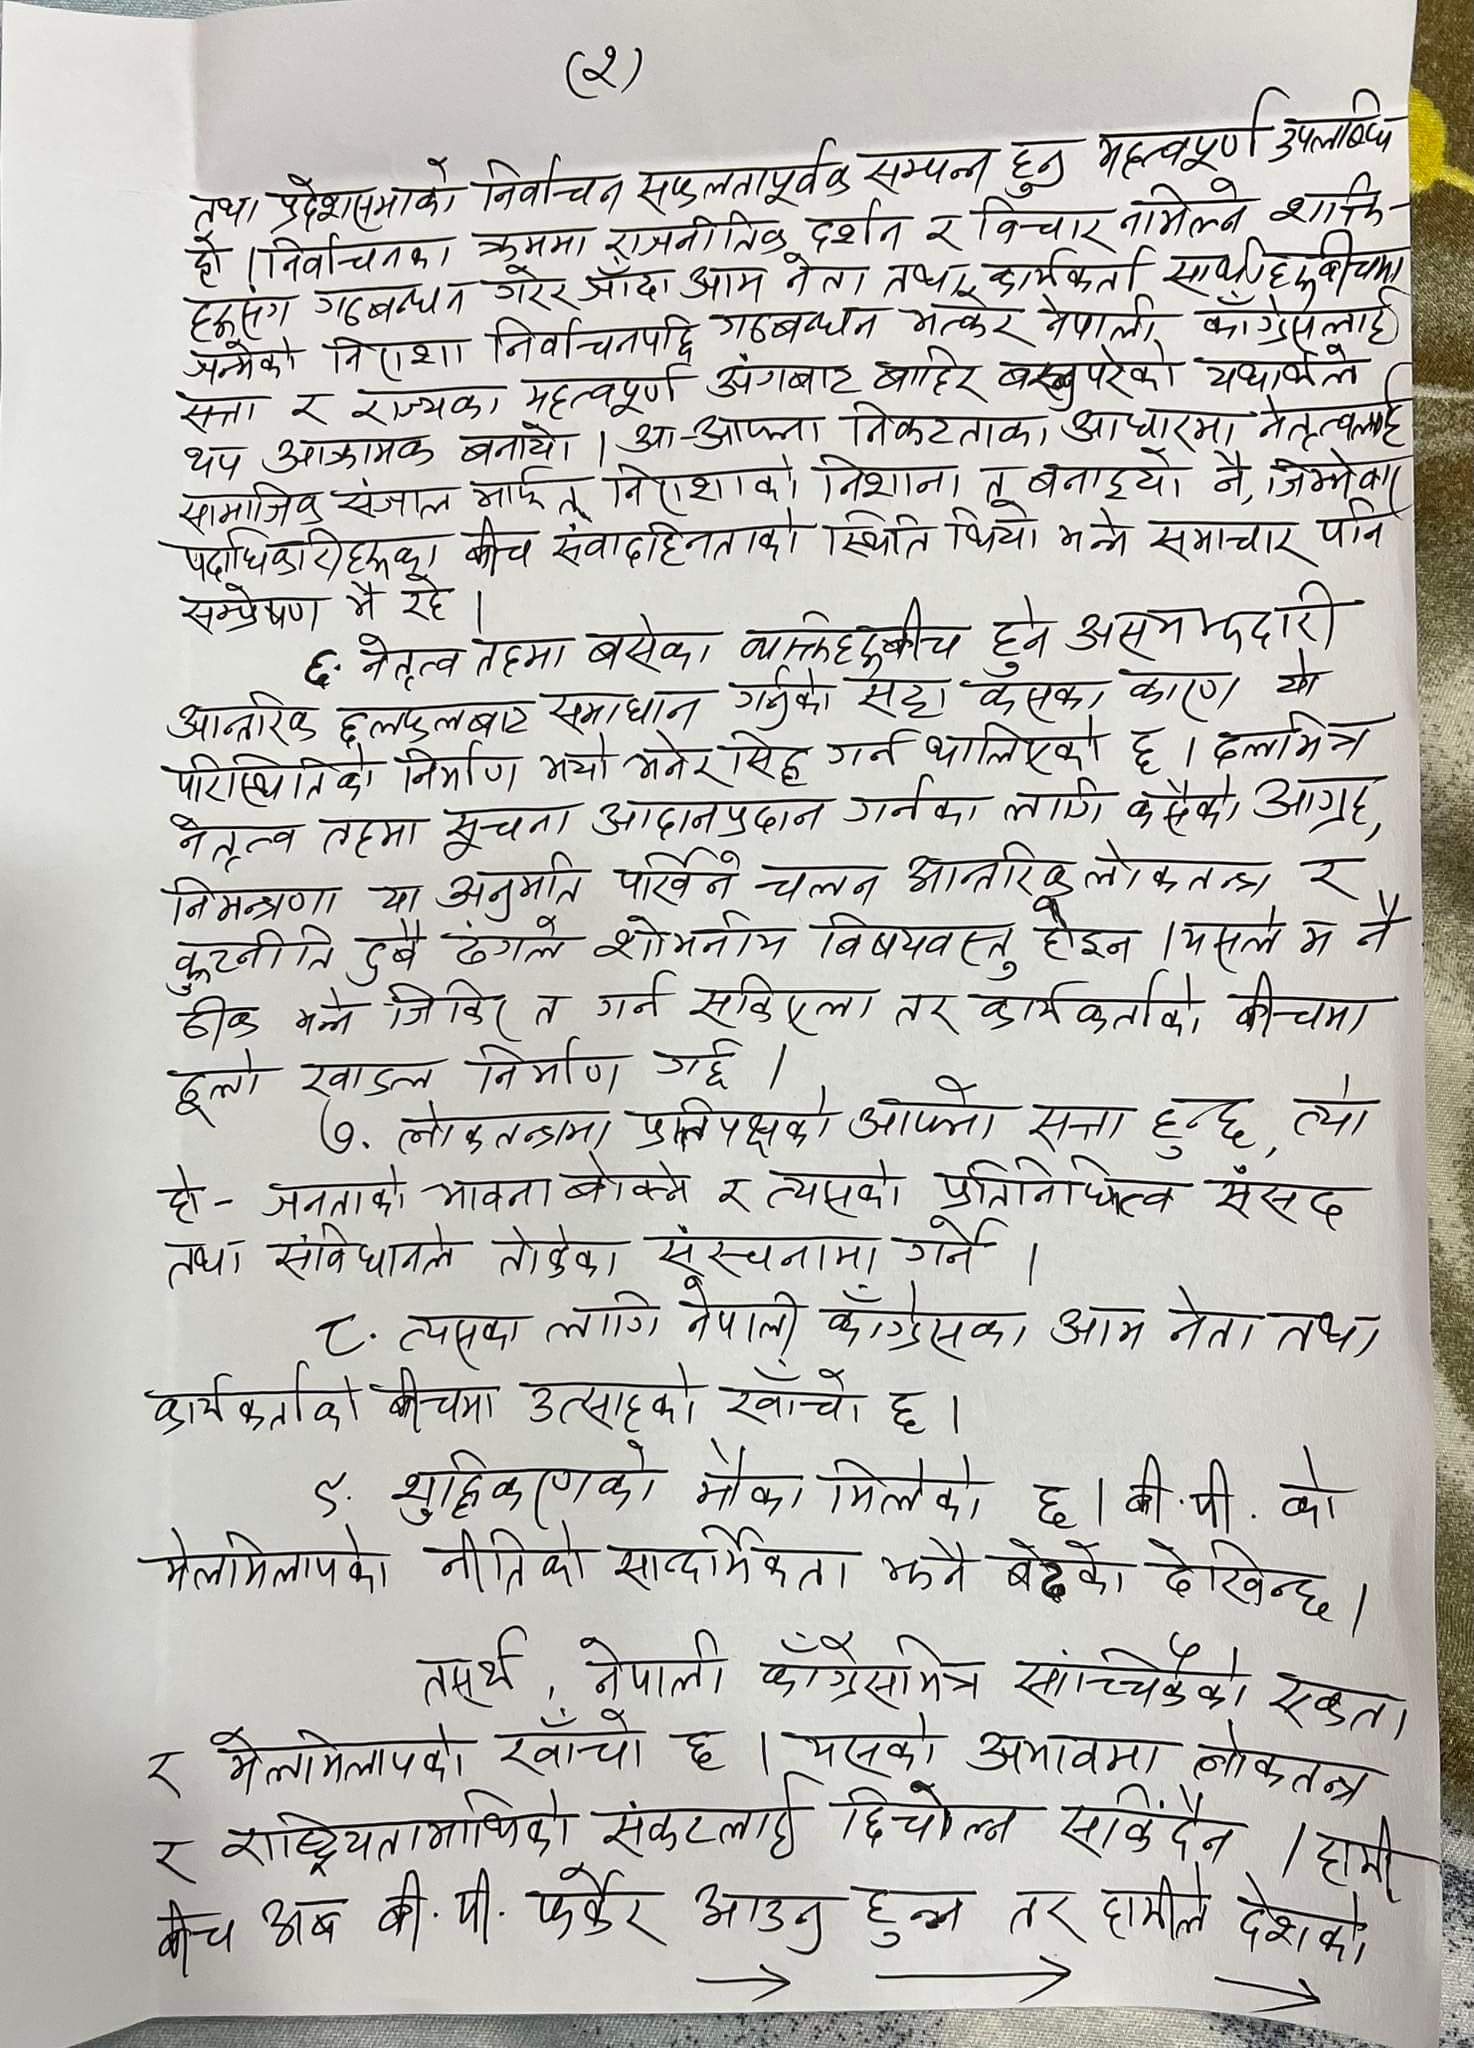 (२)
तथा प्रदेशसभाको निर्वाचन सफलतापूर्वक सम्पन्न हुनु महत्वपूर्ण उपलब्धि
हो । निर्वाचनका क्रममा राजनीतिक दर्शन र विचार नमिल्ने शक्ति-
हरूसंग गठबन्धन गरेर जाँदा आम नेता तथा कार्यकर्ता साथीहरूबीचमा
जन्मेको निराशा निर्वाचनपछि गठबन्धन भत्केर नेपाली काँग्रेसलाई
सत्ता र राज्यका महत्वपूर्ण अंगबाट बाहिर बस्नुपरेको यथार्थले
थप आक्रामक बनायो । आ-आफ्ना निकटताका आधारमा नेतृत्वलाई
सामाजिक संजाल मार्फत् निराशाको निशाना त बनाइयो नै, जिम्मेवार
पदाधिकारीहरूका बीच संवादहिनताको स्थिति थियो भन्ने समाचार पनि
सम्प्रेषण भै रहे ।
६. नेतृत्व तहमा बसेका व्यक्तिहरूबीच हुने असमझदारी
आन्तरिक छलफलबाट समाधान गर्नुको सट्टा कसका कारण यो
परिस्थितिको निर्माण भयो भनेर सिद्ध गर्न थालिएको छ । दलभित्र
नेतृत्व तहमा सूचना आदानप्रदान गर्नका लागि कसैको आग्रह,
निमन्त्रणा या अनुमति पर्खिने चलन आन्तरिक लोकतन्त्र र
कुटनीति दुबै ढंगले शोभनीय विषयवस्तु होइन । यसले म नै
ठीक भन्ने जिकिर त गर्न सकिएला तर कार्यकर्ताको बीचमा
ठूलो खाडल निर्माण गर्छ ।
७. लोकतन्त्रमा प्रतिपक्षको आफ्नो सत्ता हुन्छ, त्यो
हो - जनताको भावना बोक्ने र त्यसको प्रतिनिधित्व संसद
तथा संविधानले तोकेका संरचनामा गर्ने ।
८. त्यसका लागि नेपाली काँग्रेसका आम नेता तथा
कार्यकर्ताको बीचमा उत्साहको खाँचो छ ।
९. शुद्धिकरणको मौका मिलेको छ । बी.पी. को
मेलमिलापको नीतिको सान्दर्भिकता झनै बढेको देखिन्छ ।
तसर्थ, नेपाली काँग्रेसभित्र सांच्चिकैको एकता
र मेलमिलापको खाँचो छ । यसको अभावमा लोकतन्त्र
र राष्ट्रियतामाथिको संकटलाई छिचोल्न सकिंदैन । हामी
बीच अब बी.पी. फर्केर आउनु हुन्न तर हामीले देशको